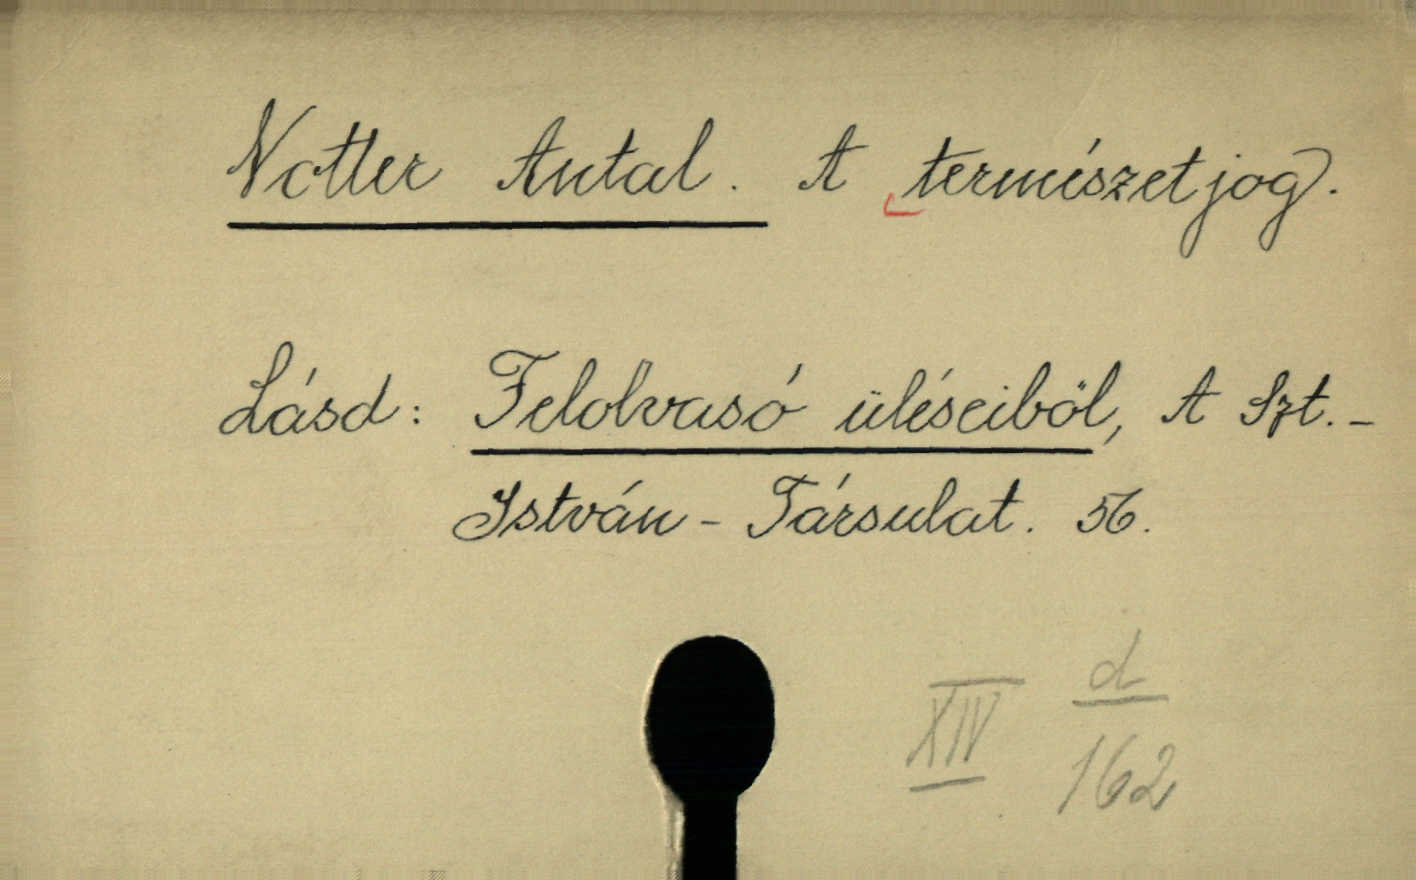 Notter Antal. A természetjog.
Lásd: Felolvasó üléseiből, A Szt.-
István-Társulat. 56.
XIV d
162